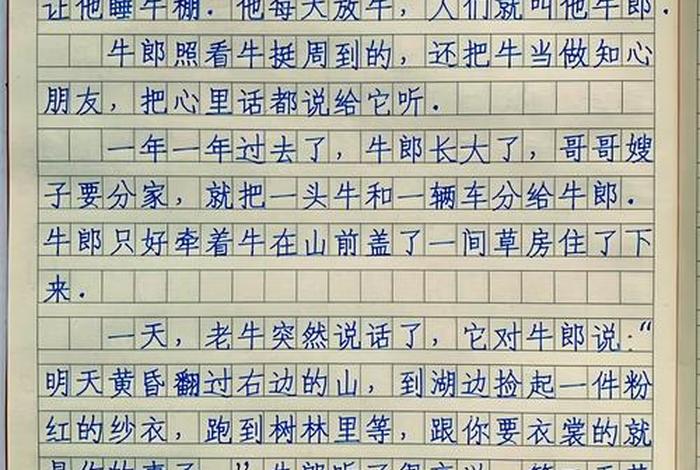 让他睡牛棚．他每天放牛，人们就叫他牛郎．
牛郎照看牛挺周到的，还把牛当做知心
朋友，把心里话都说给它听．
一年一年过去了，牛郎长大了，哥哥嫂
子要分家，就把一头牛和一辆车分给牛郎．
牛郎只好牵着牛在山前盖了一间草房住了下
来．
一天，老牛突然说话了，它对牛郎说：“
明天黄昏翻过右边的山，到湖边捡起一件粉
红的纱衣，跑到树林里等，跟你要衣裳的就
是你的妻子．”牛郎听了很高兴．第二天黄